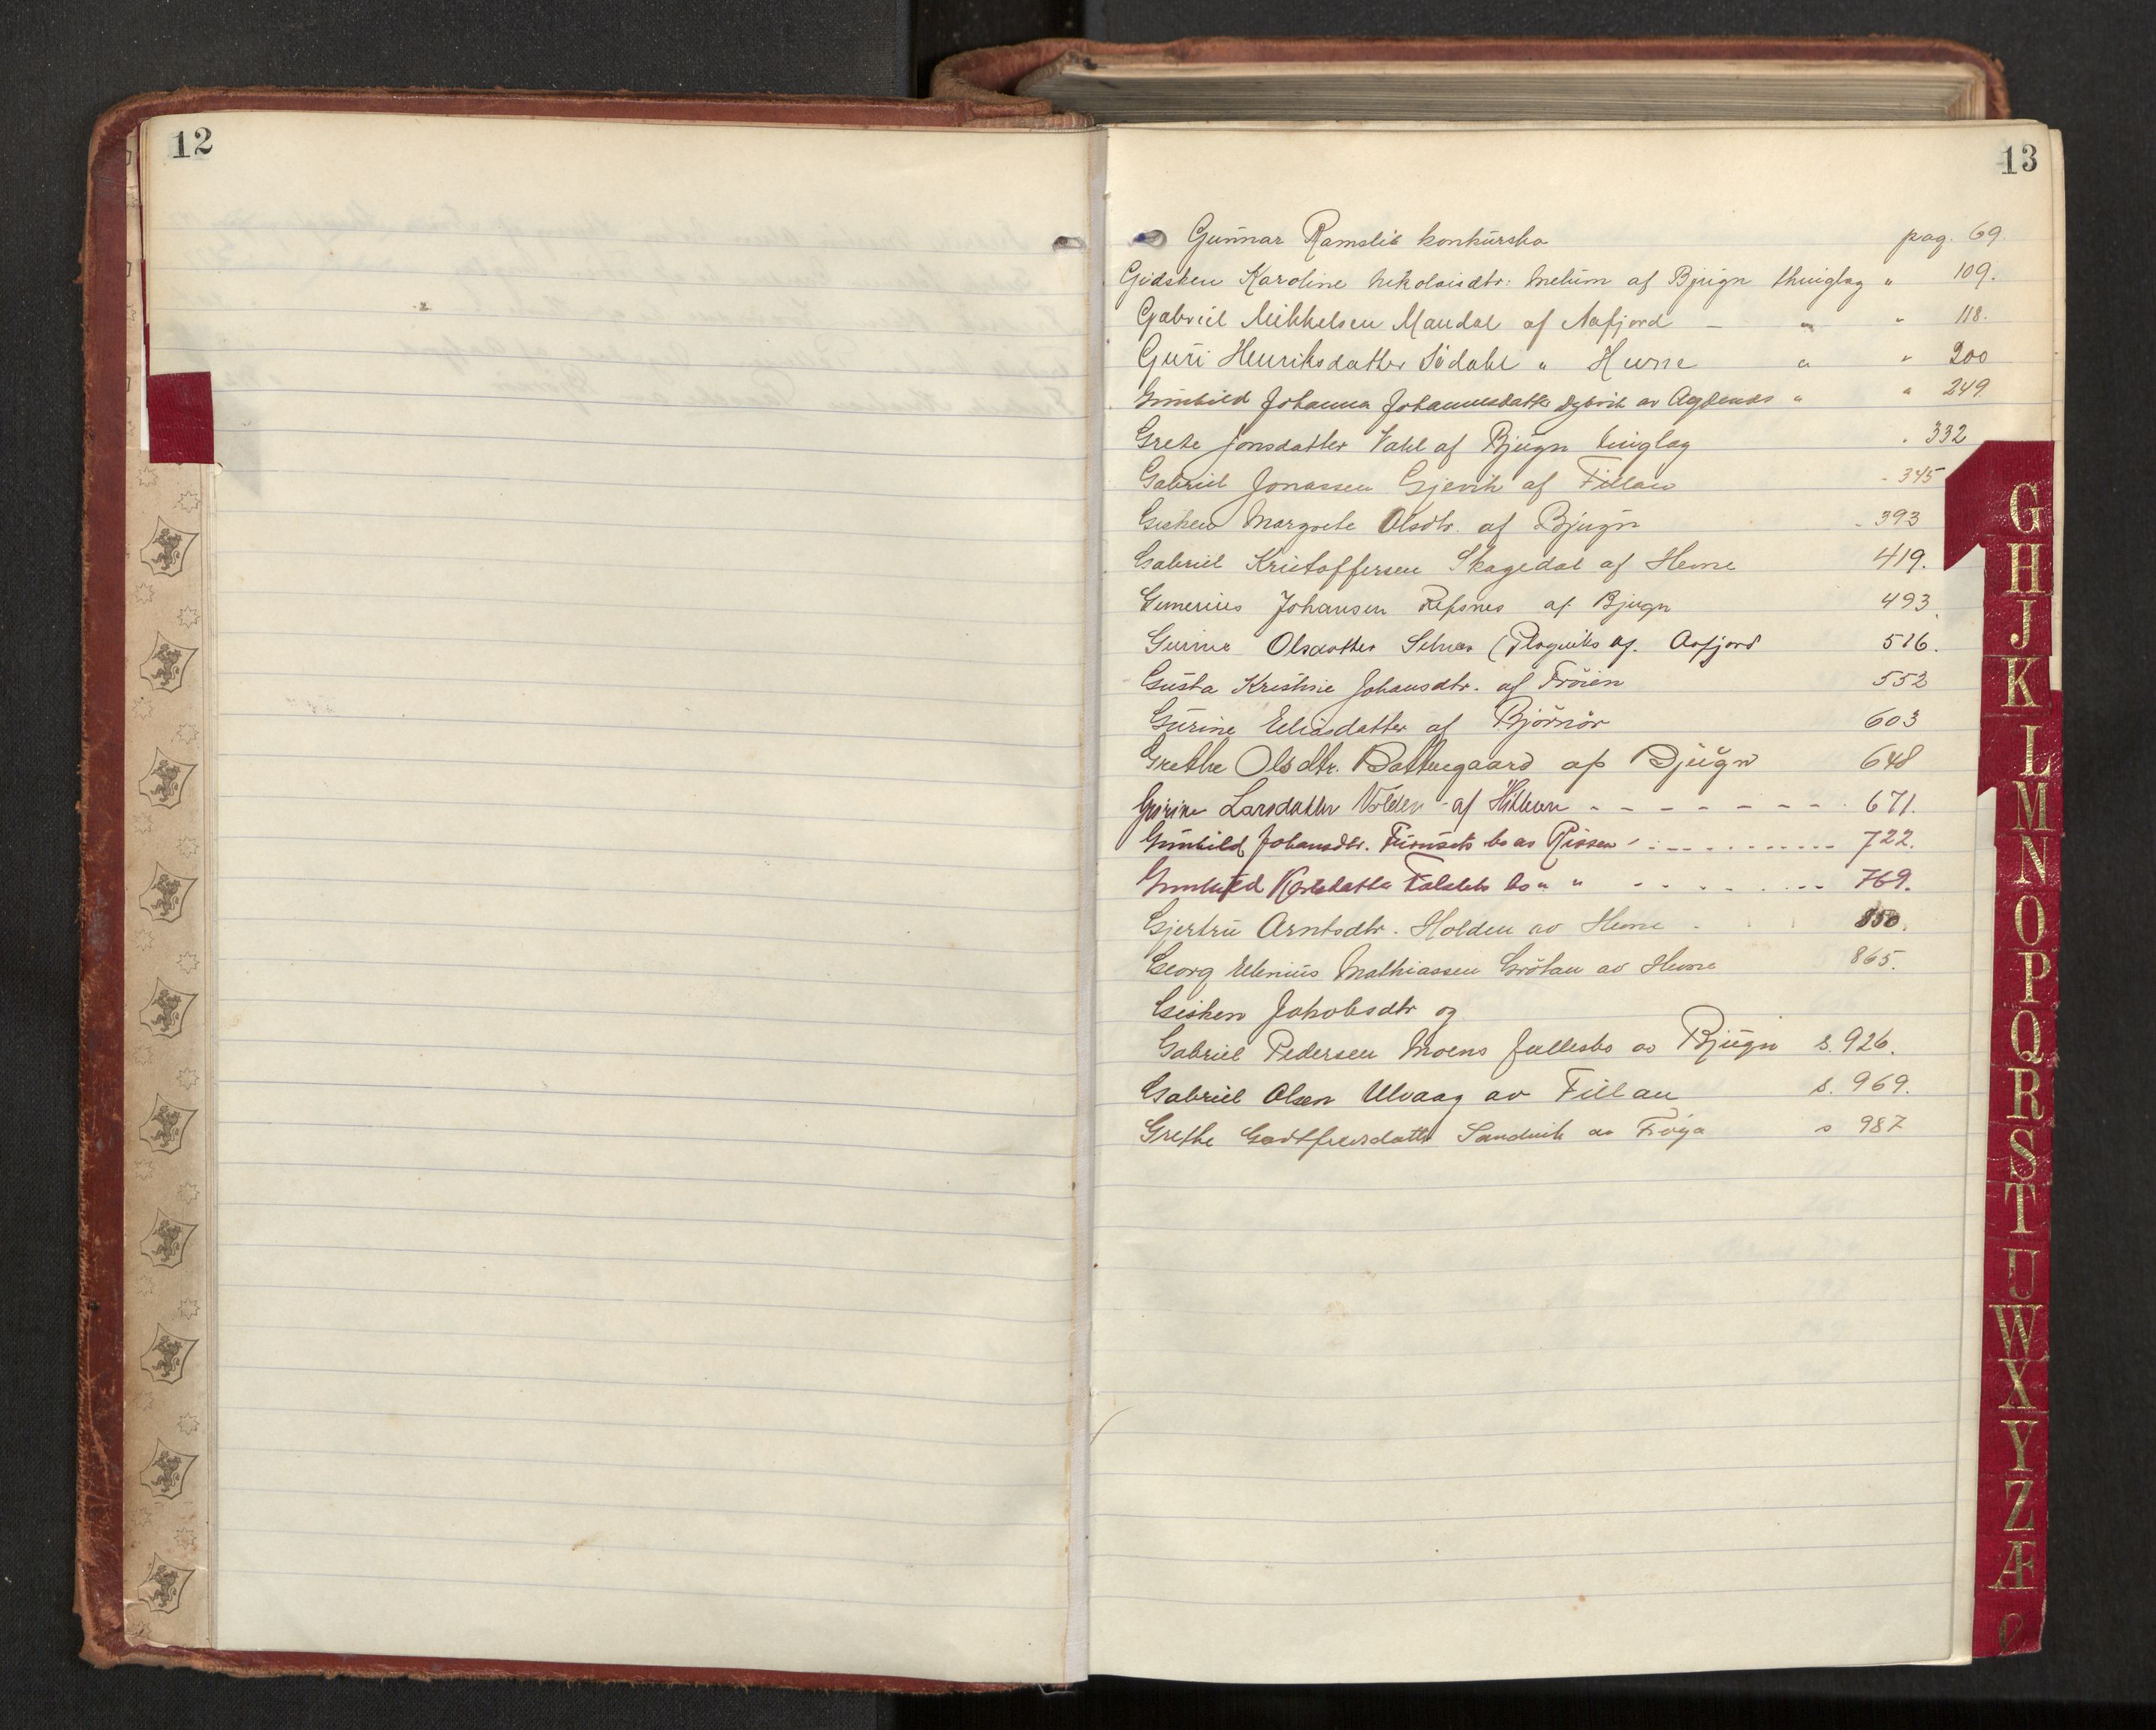 12
13
Gunnar Ramslis konkursbo pag. 69.
Gidsken Karoline Nikolaisdtr. Melum af Bjugn thinglag " 109.
Gabriel Mikkelsen Mandal af Aafjord – " " 118.
Guri Henriksdatter Södahl " Hevne " " 200
Gunhild Johanna Johannesdatter av Agdenes " " 249
Grete Jonsdatter Vahl af Bjugn tinglag " 332
Gabriel Jonassen Gjevik af Fillan - 345
Gisken Margrete Olsdtr. af Bjugn - 393
Gabriel Kristoffersen Skagedal af Hevne 419.
Gunerius Johansen Refsnes af Bjugn 493.
Gurine Olsdatter Selnes ( af. Aafjord 516.
Gusta Kristine Johansdtr. af Fröien 552
Gurine Eliasdatter af Björnör 603
Grethe Olsdtr. Battengaard af Bjugn 648
Gurine Larsdatter Volden af Hitteren - - - - - - - - 671.
Gunhild Johansdtr. Furusets bo av Rissen - - - - - - 722.
Gunhild Karlsdatter Falslets bo " " - - - - - - 769.
Gjertru Arntsdtr. Holden av Hevne 850.
Georg Elenius Mathiassen Grötan av Hevne 865.
Gisken Jakobsdtr og
Gabriel Pedersen Moens fællesbo av Bjugn s. 926.
Gabriel Olsen Ulvaag av Fillan s. 969.
Grethe Godtfredsdatter Sandvik av Fröya s 987
G
H
J
K
L
M
N
O
P
Q
R
S
T
U
W
X
Y
Z
Æ